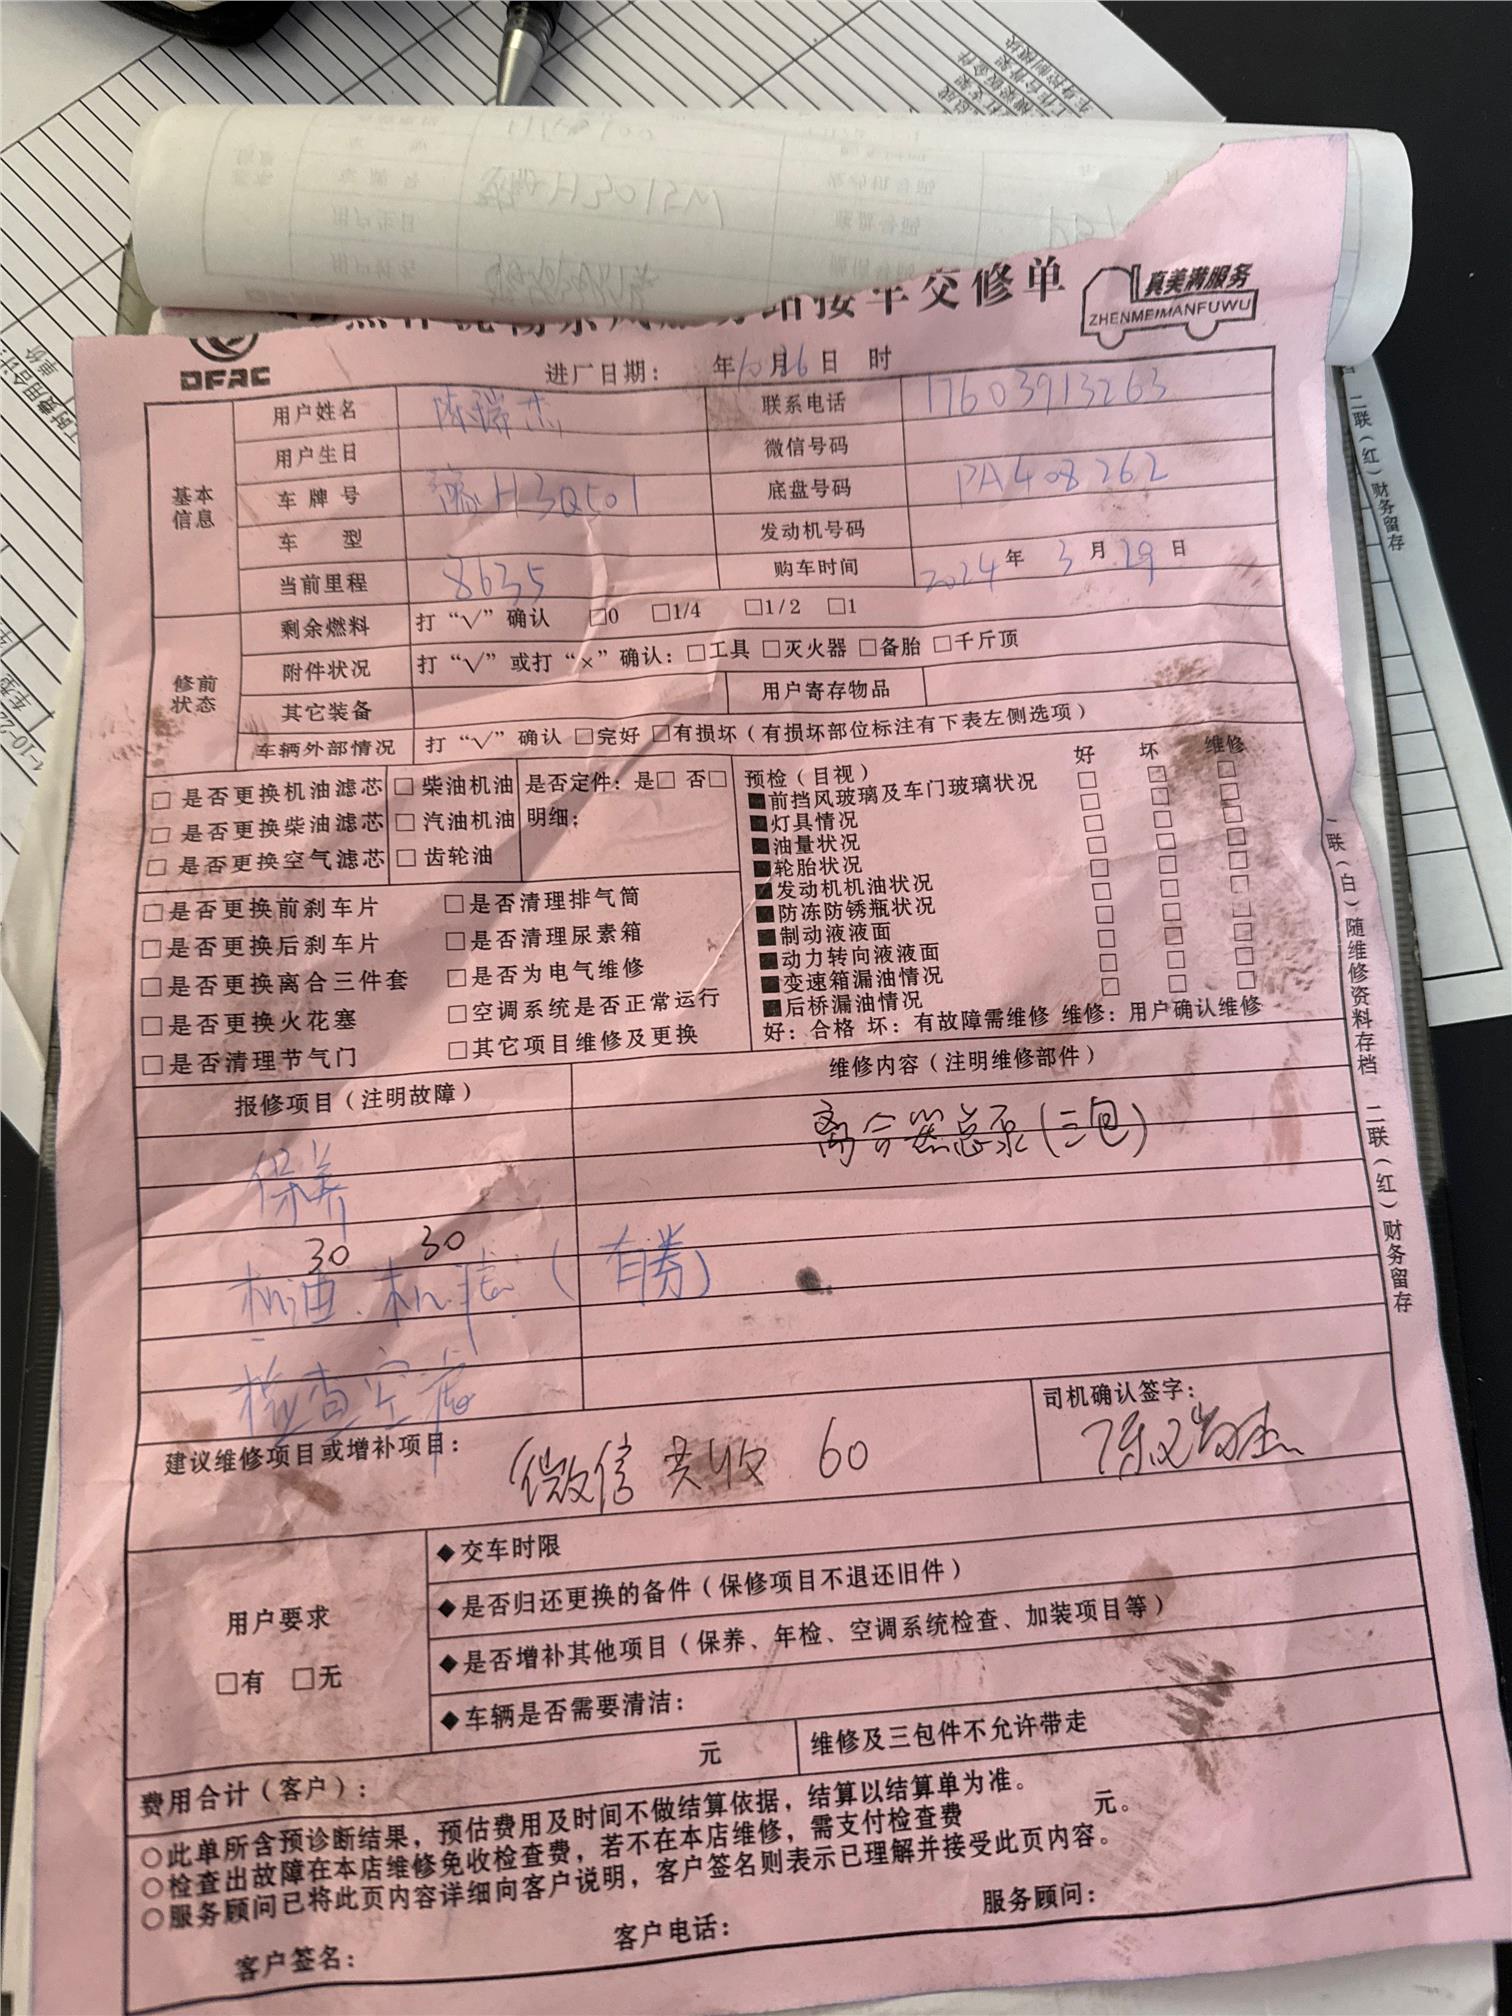 东风服务站接车交修单
真美满服务
ZHENMEIMANFUWU
DFAC
进厂日期： 年10月26日 时
基本信息
用户姓名 陈瑞杰 联系电话 17603913263
用户生日 微信号码
车牌号 豫H3Q501 底盘号码 PA408262
车 型 发动机号码
当前里程 8635 购车时间 2024年3月29日
修前状态
剩余燃料 打“√”确认 □0 □1/4 □1/2 □1
附件状况 打“√”或打“×”确认：□工具 □灭火器 □备胎 □千斤顶
其它装备 用户寄存物品
车辆外部情况 打“√”确认 □完好 □有损坏（有损坏部位标注有下表左侧选项）
□ 是否更换机油滤芯 □ 柴油机油 是否定件：是□ 否□
□ 是否更换柴油滤芯 □ 汽油机油 明细：
□ 是否更换空气滤芯 □ 齿轮油
□是否更换前刹车片 □是否清理排气筒
□是否更换后刹车片 □是否清理尿素箱
□是否更换离合三件套 □是否为电气维修
□是否更换火花塞 □空调系统是否正常运行
□是否清理节气门 □其它项目维修及更换
预检（目视） 好 坏 维修
■前挡风玻璃及车门玻璃状况 □ □ □
■灯具情况 □ □ □
■油量状况 □ □ □
■轮胎状况 □ □ □
■发动机机油状况 □ □ □
■防冻防锈瓶状况 □ □ □
■制动液液面 □ □ □
■动力转向液液面 □ □ □
■变速箱漏油情况 □ □ □
■后桥漏油情况 □ □ □
好：合格 坏：有故障需维修 维修：用户确认维修
报修项目（注明故障） 维修内容（注明维修部件）
离合器总泵（三包）
保养
30 30
机油.机滤（有券）
检查空滤
建议维修项目或增补项目： 微信共收 60
司机确认签字：
陈瑞杰
用户要求
□有 □无
◆交车时限
◆是否归还更换的备件（保修项目不退还旧件）
◆是否增补其他项目（保养、年检、空调系统检查、加装项目等）
◆车辆是否需要清洁：
费用合计（客户）： 元 维修及三包件不允许带走
○此单所含预诊断结果，预估费用及时间不做结算依据，结算以结算单为准。
○检查出故障在本店维修免收检查费，若不在本店维修，需支付检查费 元。
○服务顾问已将此页内容详细向客户说明，客户签名则表示已理解并接受此页内容。
客户签名： 客户电话： 服务顾问：
一联（白）随维修资料存档 二联（红）财务留存
二联（红）财务留存